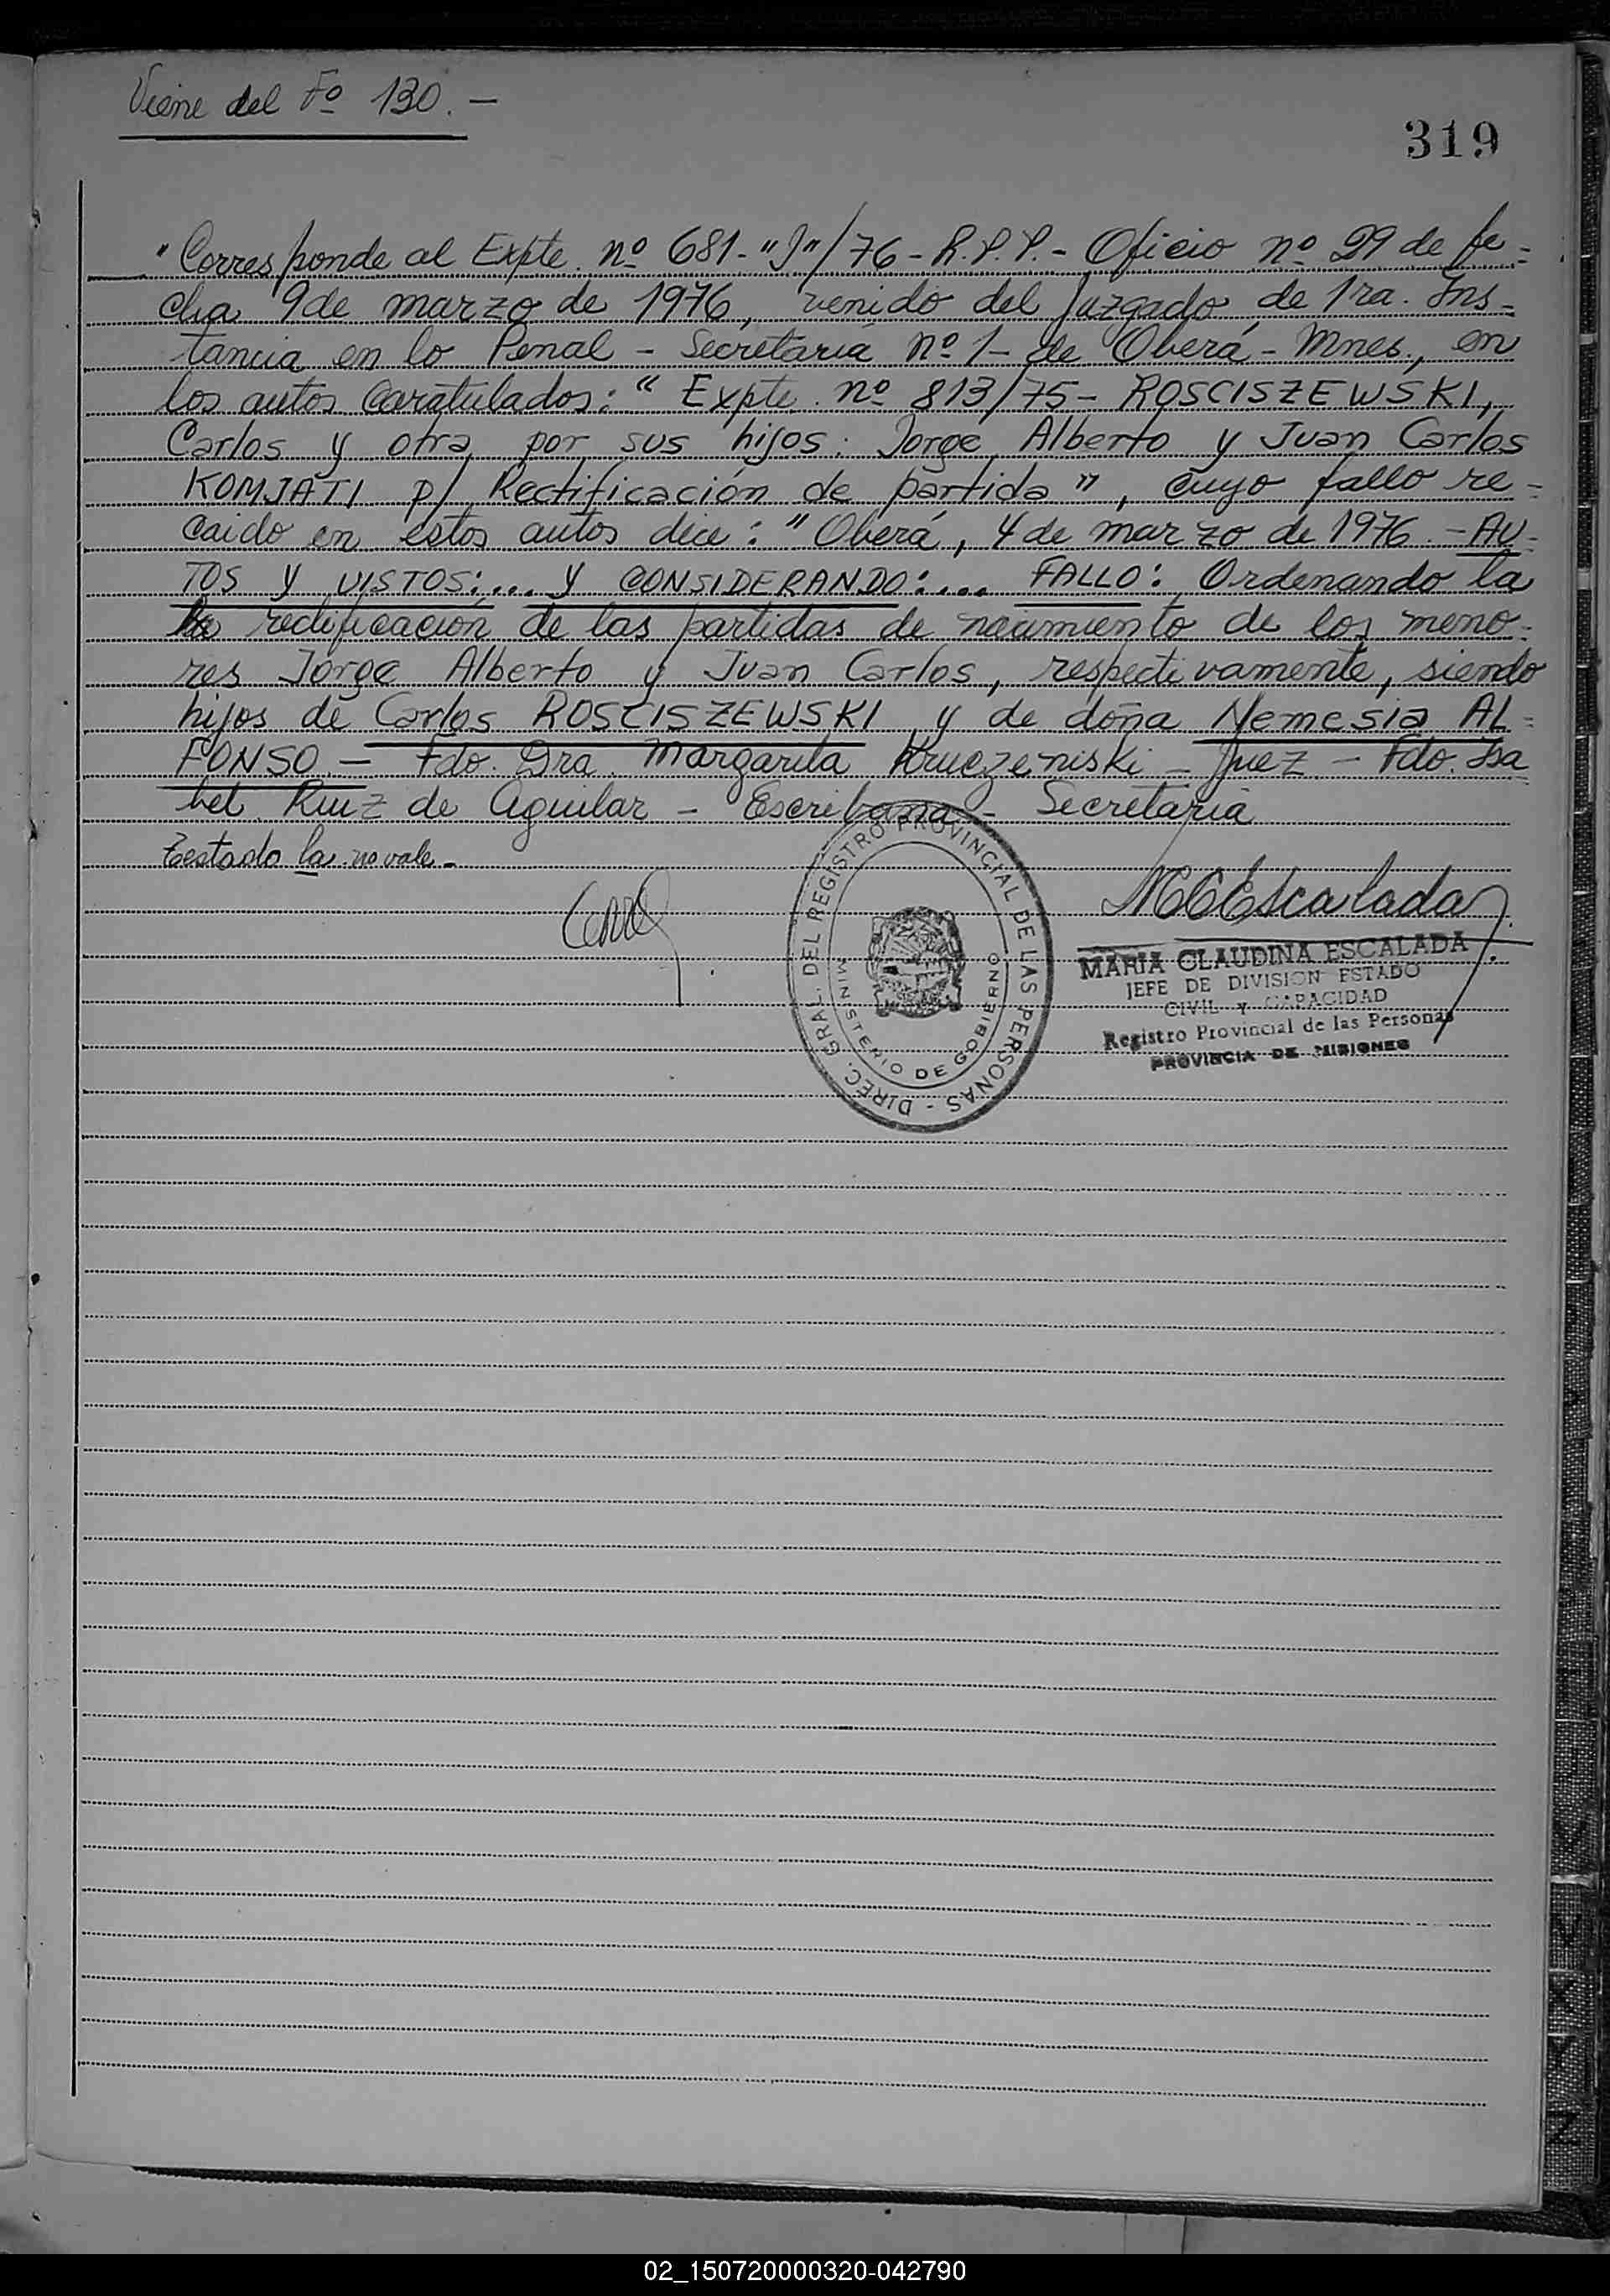 Viene del Fº 130.-
319
"Corresponde al Expte. nº 681-"J"/76-R.P.P.- Oficio nº 29 de fe-
cha 9 de marzo de 1976, venido del Juzgado de 1ra. Ins-
tancia en lo Penal - Secretaría nº 1- de Oberá - Mnes., en
los autos caratulados: "Expte. nº 813/75- ROSCISZEWSKI,
Carlos y otra por sus hijos: Jorge Alberto y Juan Carlos
KOMJATI p/ Rectificación de partida", cuyo fallo re-
caido en estos autos dice: "Oberá, 4 de marzo de 1976.-AU-
TOS Y VISTOS:... Y CONSIDERANDO:... FALLO: Ordenando la
la rectificación de las partidas de nacimiento de los meno-
res Jorge Alberto y Juan Carlos, respectivamente, siendo
hijos de Carlos ROSCISZEWSKI y de doña Nemesia AL-
FONSO.- Fdo. Dra. Margarita Kruczeniski - Juez - Fdo. Isa
bel Ruiz de Aguilar - Escribana - Secretaria
Testado la no vale.-
DIREC. GRAL. DEL REGISTRO PROVINCIAL DE LAS PERSONAS -
MINISTERIO DE GOBIERNO
MCEscalada
MARIA CLAUDINA ESCALADA
JEFE DE DIVISION ESTADO
CIVIL Y CAPACIDAD
Registro Provincial de las Personas
PROVINCIA DE MISIONES
02_150720000320-042790